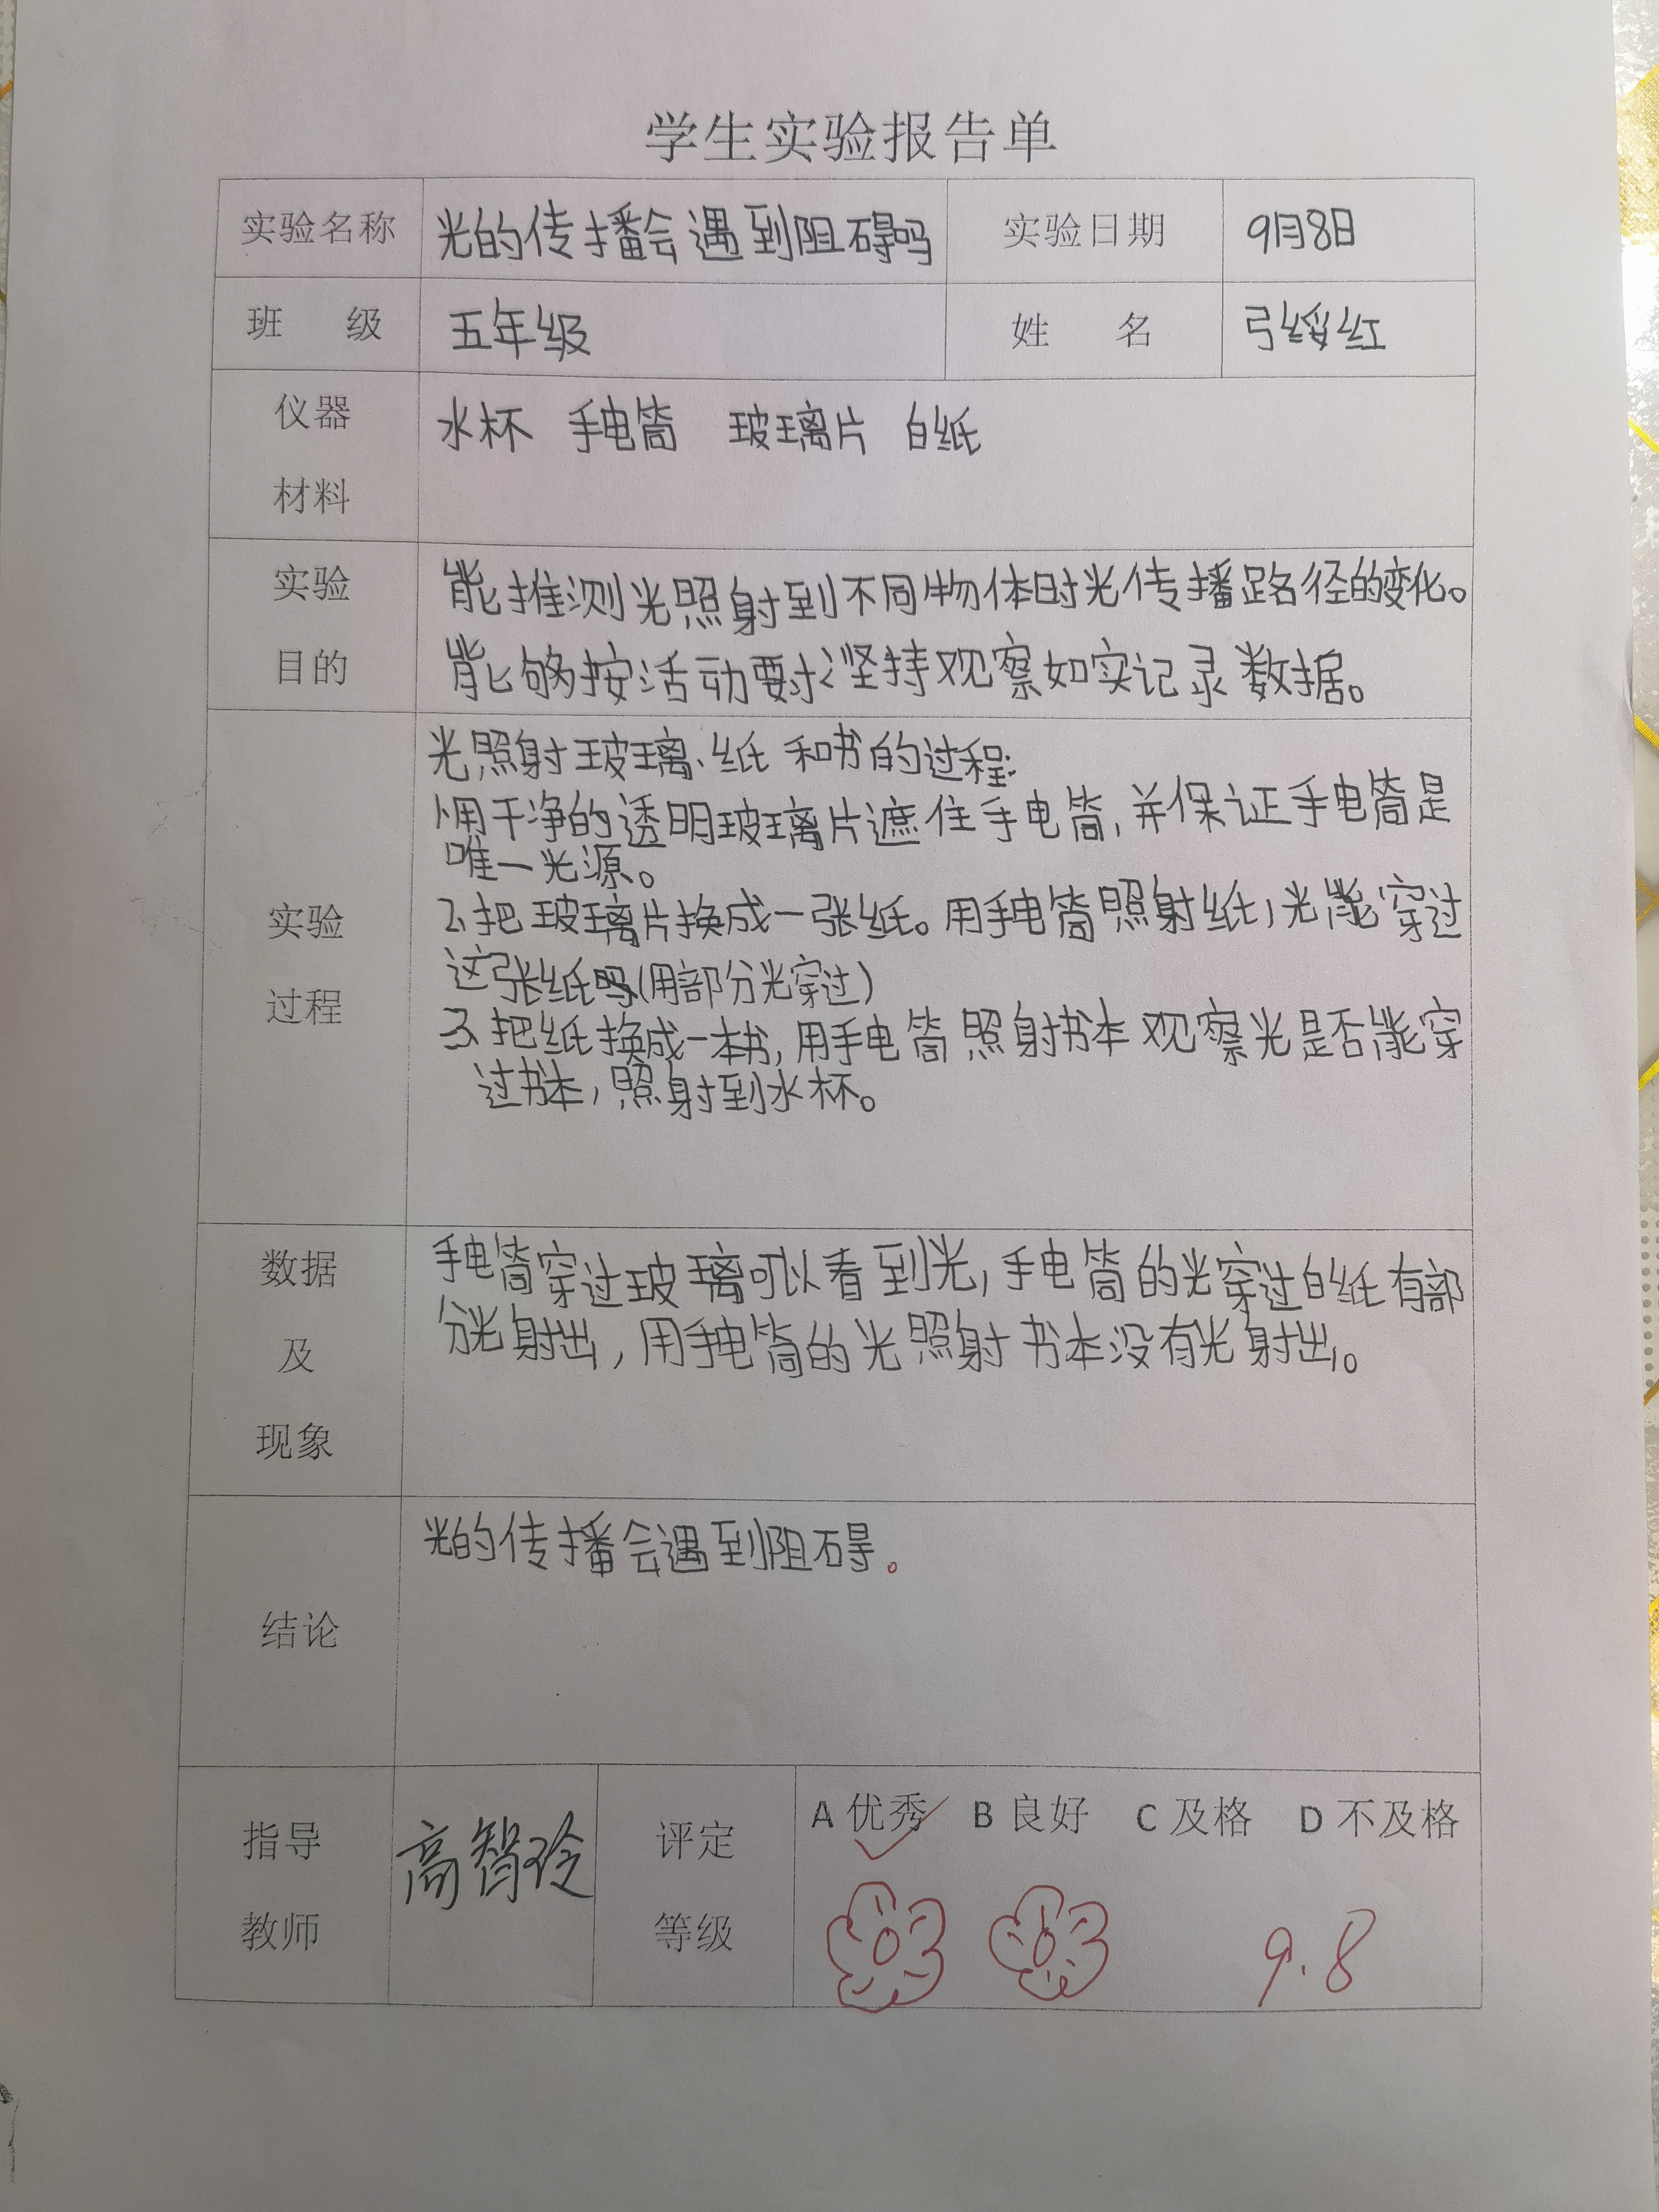 学生实验报告单
实验名称 光的传播会遇到阻碍吗 实验日期 9月8日
班 级 五年级 姓 名 弓 红
仪器 水杯 手电筒 玻璃片 白纸
材料
实验 能推测光照射到不同物体时光传播路径的变化。
目的 能够按活动要求坚持观察如实记录数据。
光照射玻璃、纸和书的过程:
1.用干净的透明玻璃片遮住手电筒,并保证手电筒是
唯一光源。
实验 2.把玻璃片换成一张纸。用手电筒照射纸,光能穿过
这张纸吗(用部分光穿过)
过程 3.把纸换成一本书,用手电筒照射书本观察光是否能穿
过书本,照射到水杯。
数据 手电筒穿过玻璃可以看到光,手电筒的光穿过白纸有部
及 分光射出,用手电筒的光照射书本没有光射出。
现象
光的传播会遇到阻碍。
结论
指导 高智玲 评定 A 优秀 B 良好 C 及格 D 不及格
教师 等级 9.8